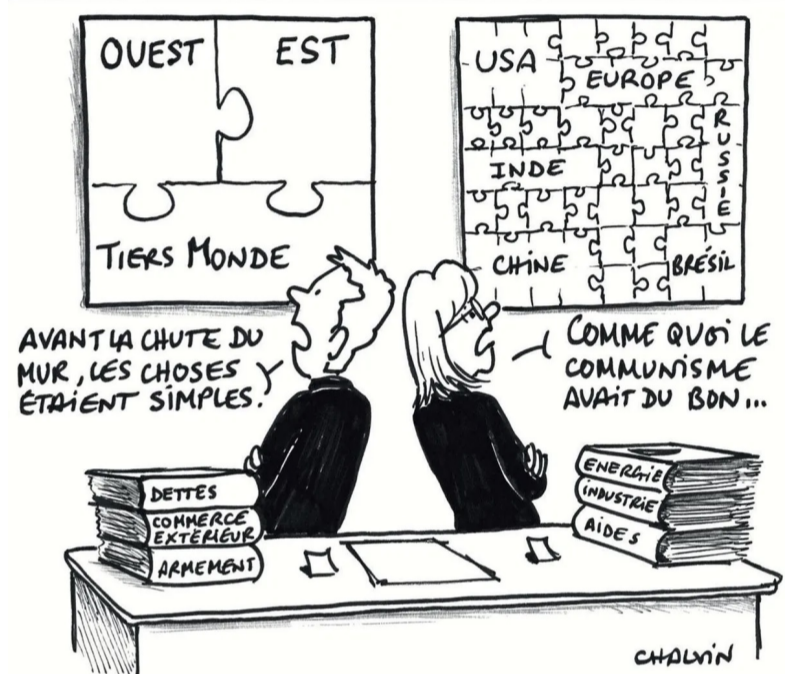 OUEST
EST
TIERS MONDE
USA
EUROPE
RUSSIE
INDE
CHINE
BRÉSIL
AVANT LA CHUTE DU
MUR, LES CHOSES
ÉTAIENT SIMPLES.
COMME QUOI LE
COMMUNISME
AVAIT DU BON...
DETTES
COMMERCE
EXTÉRIEUR
ARMEMENT
ENERGIE
INDUSTRIE
AIDES
CHALVIN